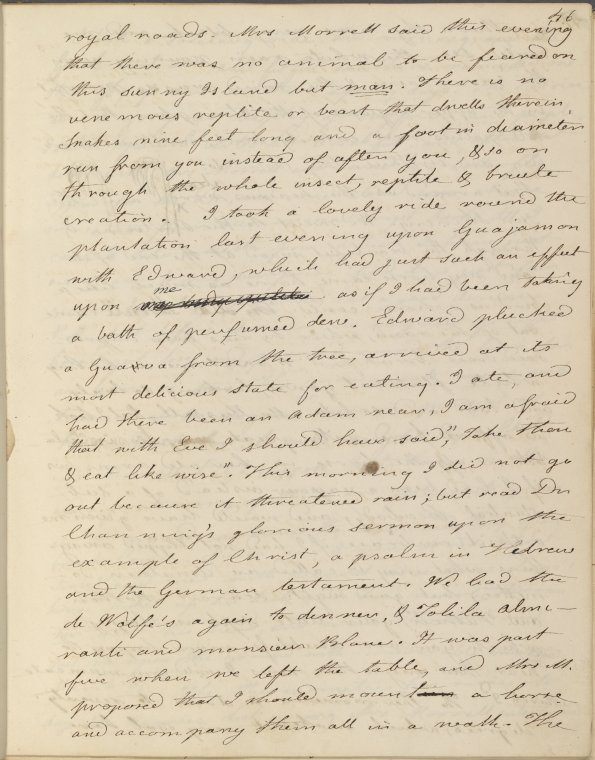 46
royal roads. Mrs Morrell said this evening
that there was no animal to be feared on
this sunny Island but man. There is no
venemous reptile or beast that dwells therein
Snakes nine feet long and a foot in diameter
run from you instead of after you, & so on
through the whole insect, reptile & brute
creation. I took a lovely ride round the
plantation last evening upon Guajamon
with Edward, which had just such an effect
me
upon as if I had been taking
a bath of perfumed dew. Edward plucked
a Guava from the tree, arrived at its
most delicious state for eating. I ate, and
had there been an Adam near, I am afraid
that with Eve I should have said, "Take thou
& eat like wise". This morning I did not go
out because it threatened rain; but read Dr
Channing's glorious sermon upon the
example of Christ, a psalm in Hebrew
and the German testament. We had the
de Wolfe's again to dinner, & Tolila Almi-
ranti and monsieur Blanc. It was past
five when we left the table, and Mrs M.
proposed that I should mount a horse
and accompany them all in a walk. The